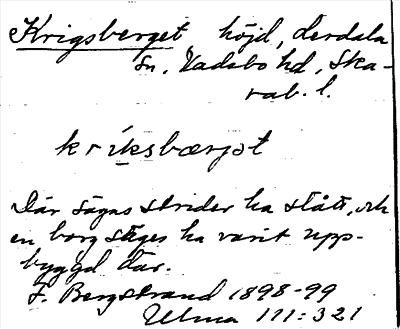 Krigsberget, höjd, Lerdala
sn, Vadsbo hd, Ska-
rab. l.
kríksbærjət
Där sägas strider ha stått, och
en borg säges ha varit upp-
byggd där.
F. Bergstrand 1898-99
Ulma 111:321